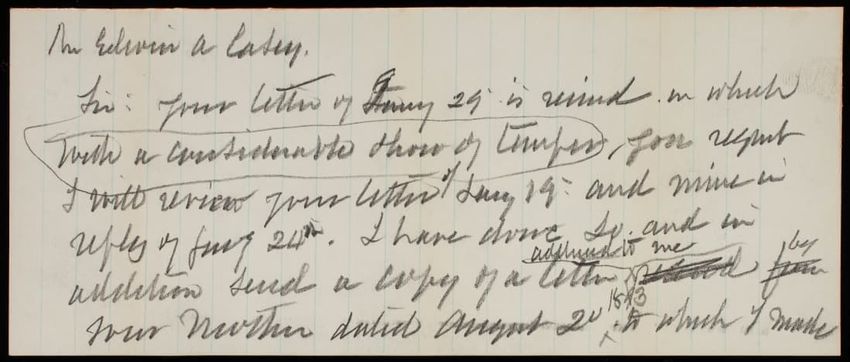 Mr Edwin A Casey.
Sir: Your letter of Jany 29 is recived in which
with a considerable show of temper, you request
I will review your letter of Jany 19 and mine in
reply of Jany 24th. I have done so and in
addressed to me
addition send a copy of a letter by
1883
your Mother dated August 20 to which I made